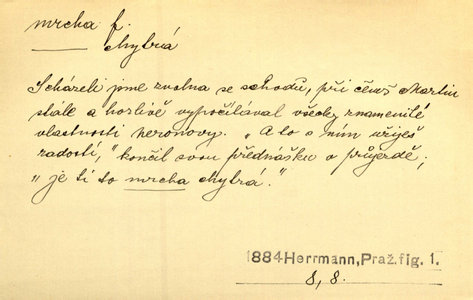 mrcha f.
chytrá
Scházeli jsme zvolna se schodů, při čemž Martin
stále a horlivě vypočítával všecky znamenité
vlastnosti neronovy. „A to s ním užiješ
radostí,“ končil svou přednášku o průjezdě;
„je ti to mrcha chytrá.“
1884 Herrmann, Praž. fig. 1.
8, 8.